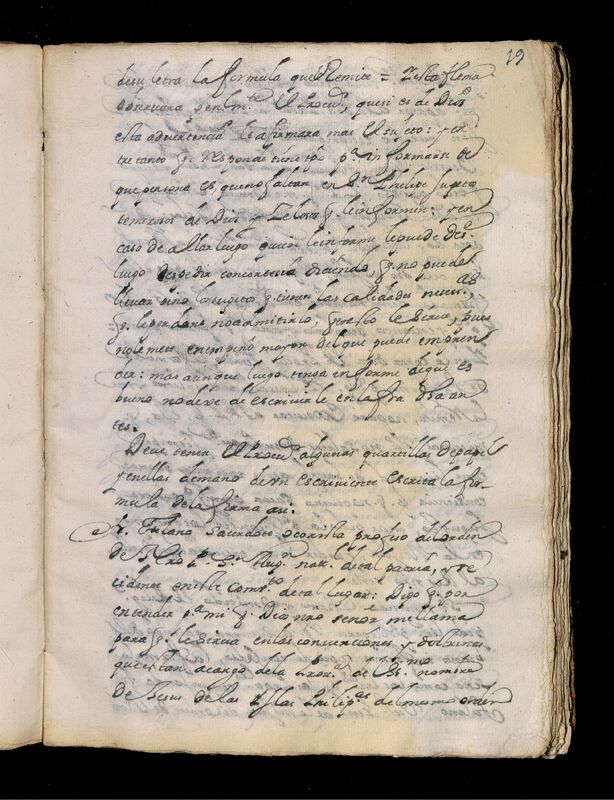 19
de su letra la formula que Remite = Y esta flema
observara por el m.to El Procu.r, que si es de Dios
esta advertencia le afirmara mas El sujeto: y en
tre tanto q. responde tiene tpo p.a informarse de
que persona es, que no faltan en S.n Phelipe sugetos
temerosos de Dios y Zelosos q. le informen: y en
caso de allar luego quien le informe le puede des
luego despedir con cortesia diciendo, q. no puede
llevar sino los sugetos q. tienen las calidades neces.as,
q. le perdone no admitirlo, y esto le sirva, pues
no le mete en empeño mayor del que puede empren
der: mas aunque luego tenga informe de que es
bueno no deve de escrivirle en la fra dha an
tes.
Deve tener El Procu.r algunas quartillas de papel
y en ellas de mano de un escriviente escrita la for
mula de la firma asi.
Fr. Fulano Sacerdote o corista profeso del orden
de N. Pro P. S. Aug.n nat. de tal patria, y re
sidente en este conv.to de tal lugar: Digo q. por
entender p.a mi q. Dios nro señor me llama
para q. le sirva en las conversiones y doctrinas
que estan a cargo de la Prov.a del SS.mo nombre
de Jesus de las Yslas Philip.as del mismo orden